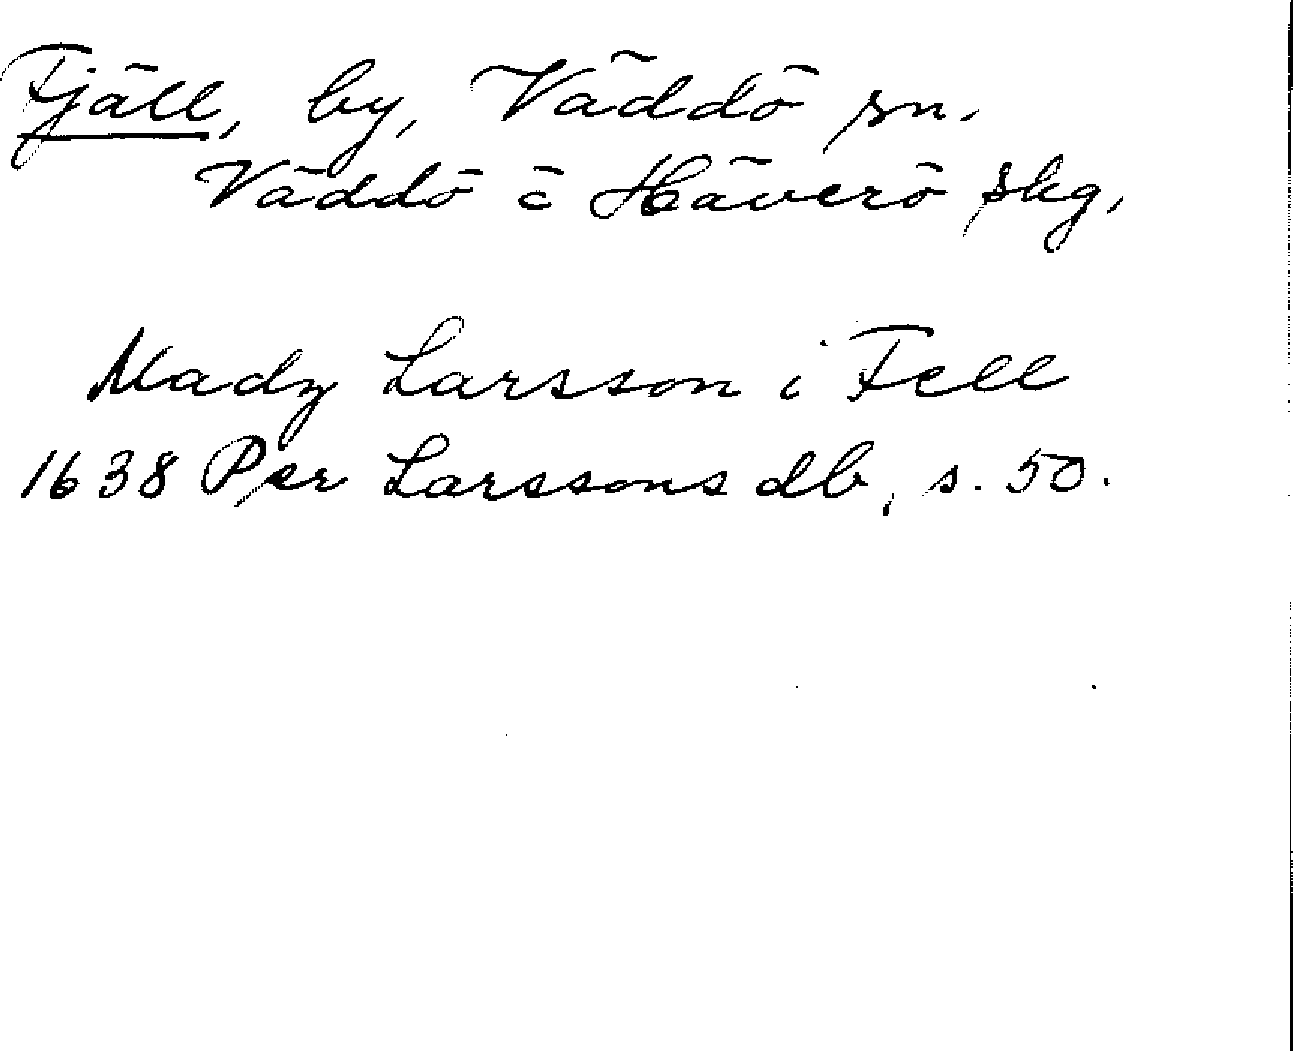 Fjäll, by, Väddö sn.
Väddö o Häverö skg.
Madz Larsson i Fell
1638 Per Larssons db, s. 50.